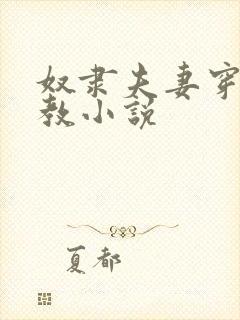 奴隶夫妻穿
教小说
夏都